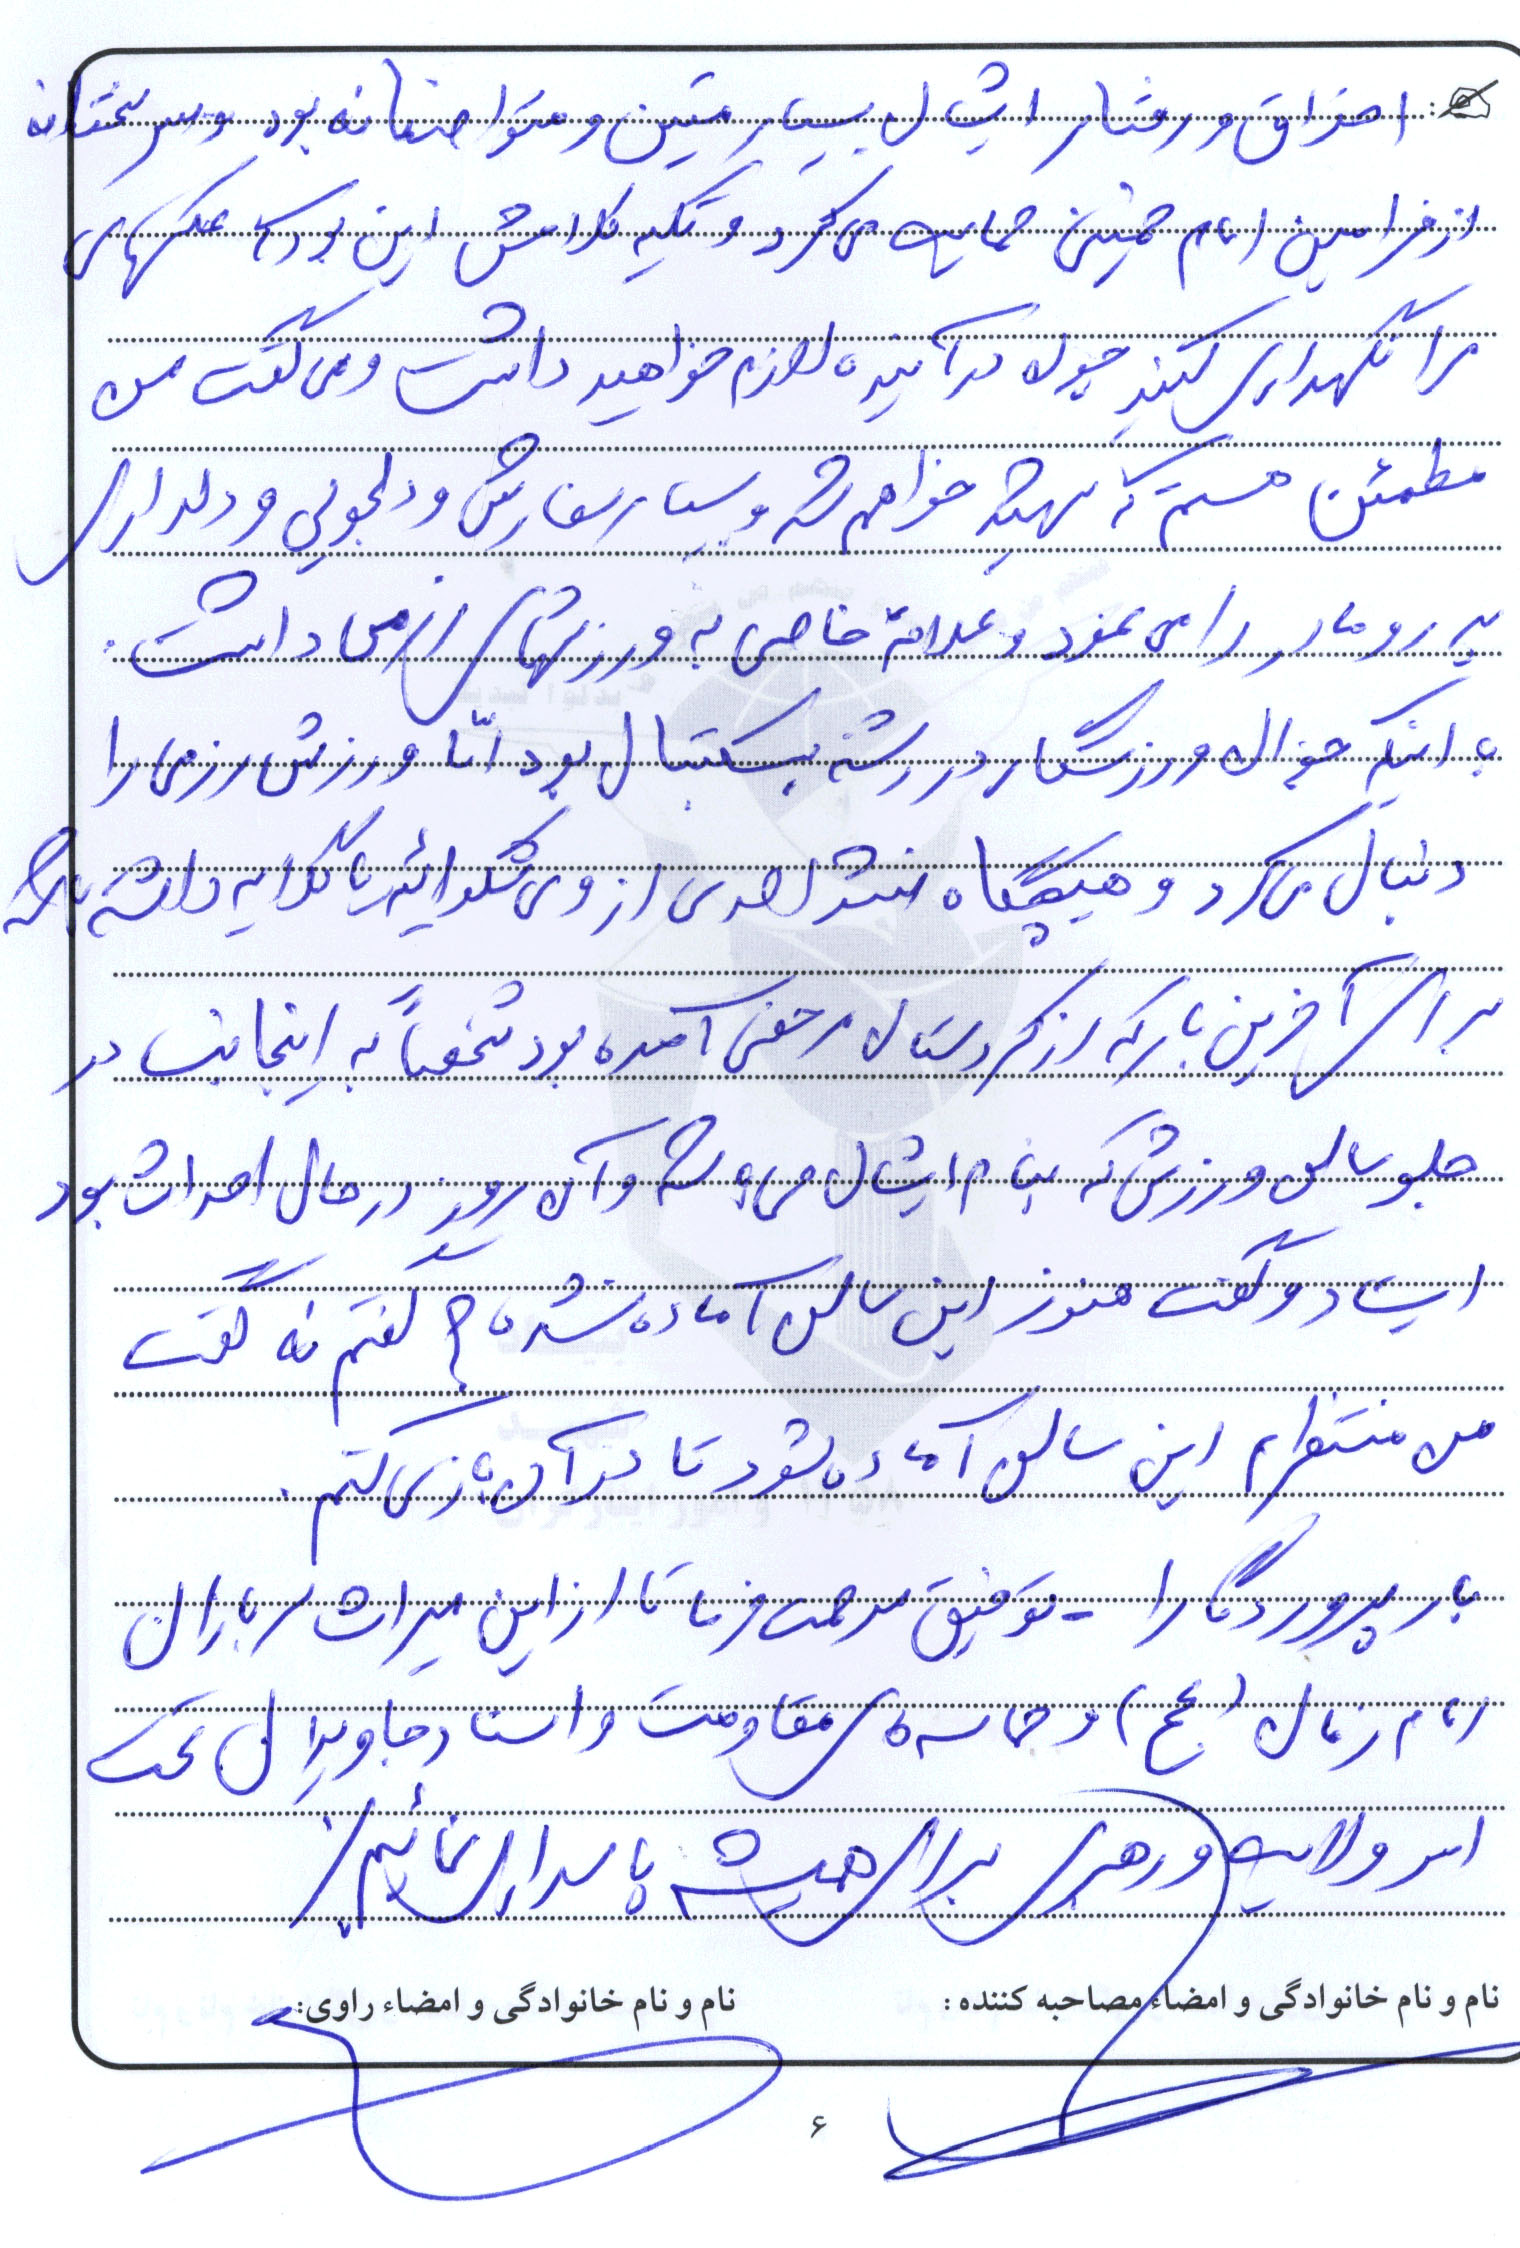 اخلاق و رفتار ایشان بسیار متین و متواضعانه بود و سرسختانه
از فرامین امام خمینی حمایت می کرد و تکیه کلامش این بود که عکسهای
مرا نگهداری کنید چون در آینده لازم خواهید داشت و می گفت من
مطمئن هستم که شهید خواهم شد و بسیار سفارش و دلجویی و دلداری
پدر و مادر را می نمود و علاقه خاصی به ورزشهای رزمی داشت.
با اینکه جوان ورزشکار در رشته بسکتبال بود امّا ورزش رزمی را
دنبال می کرد و هیچگاه نشد احدی از وی شکوائیه یا گلایه داشته باشد
برای آخرین بار که از کردستان مرخصی آمده بود شخصاً به اینجانب در
جلو سالن ورزشی که بنام ایشان می باشد و آن روز در حال احداث بود
ایستاد و گفت هنوز این سالن آماده نشده؟ گفتم نه گفت
من منتظرم این سالن آماده شود تا در آن بازی کنم.
بار پروردگارا - توفیق مرحمت فرما تا از این میراث سربازان
امام زمان (عج) و حماسه های مقاومت و اسناد جاویدان تحت
امر ولایت و رهبری برای همیشه پاسداری نمائیم
نام و نام خانوادگی و امضاء مصاحبه کننده : نام و نام خانوادگی و امضاء راوی:
۶